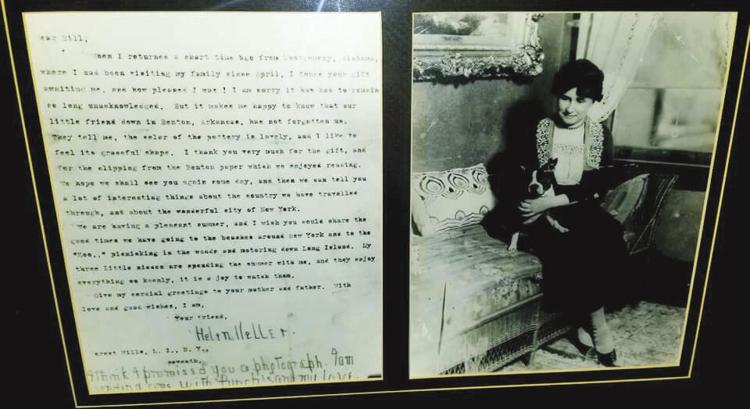 ear Bill,
When I returned a short time ago from Montgomery, Alabama,
where I had been visiting my family since April, I found your gift
awaiting me, and how pleased I was! I am sorry it has had to remain
so long unacknowledged. But it makes me happy to know that our
little friend down in Benton, Arkansas, has not forgotten us.
They tell me, the color of the pottery is lovely, and I like to
feel its graceful shape. I thank you very much for the gift, and
for the clipping from the Benton paper which we enjoyed reading.
We hope we shall see you again some day, and then we can tell you
a lot of interesting things about the country we have travelled
through, and about the wonderful city of New York.
We are having a pleasant summer, and I wish you could share the
good times we have going to the beaches around New York and to the
"Zoo.," picnicking in the woods and motoring down Long Island. My
three little nieces are spending the summer with me, and they enjoy
everything so keenly, it is a joy to watch them.
Give my cordial greetings to your mother and father. With
love and good wishes, I am,
Your friend,
Helen Keller.
orest Hills, L. I., N. Y.,
seventh.
I think I promised you a photograph. I am
sending one with